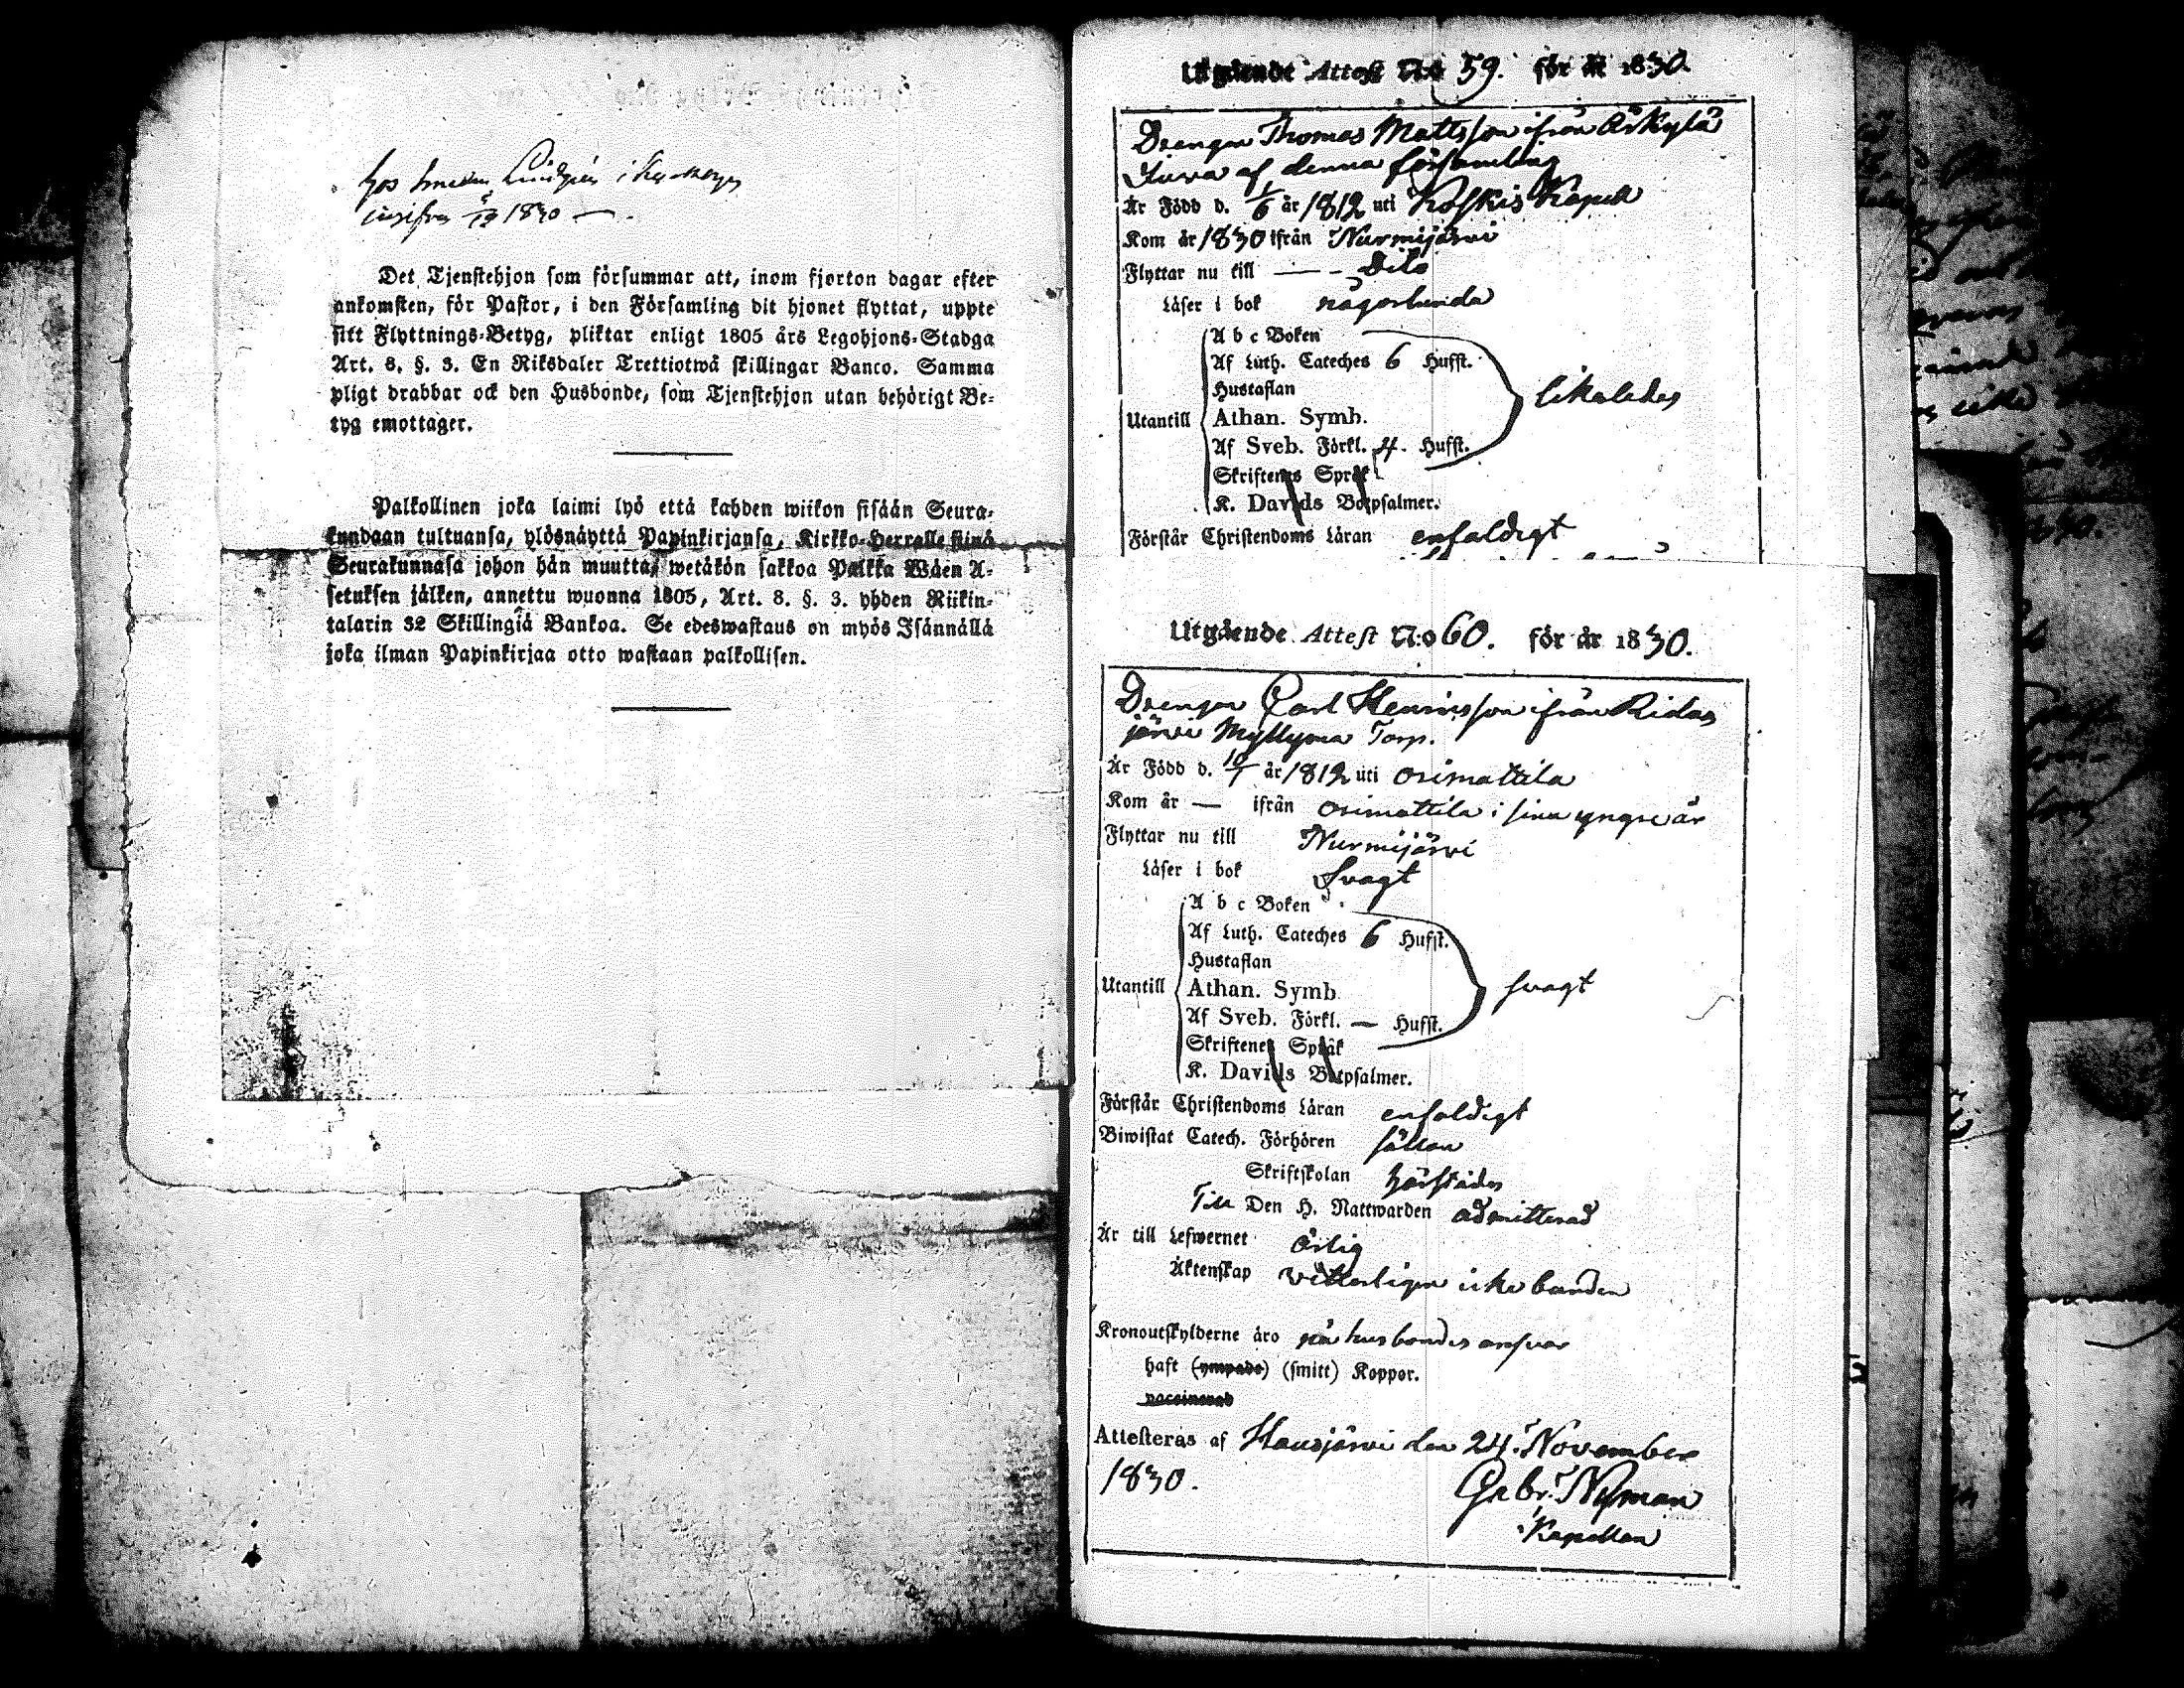 hos smeden Lindgren i
1830 —.
Det Tjenstehjon som försummar att, inom fjorton dagar efter
ankomsten, för Pastor, i den Församling dit hjonet flyttat, uppte
sitt Flyttnings-Betyg, pliktar enligt 1805 års Legohjons-Stadga
Art. 8. §. 3. En Riksdaler Trettiotwå skillingar Banco. Samma
pligt drabbar ock den Husbonde, som Tjenstehjon utan behörigt Be-
tyg emottager.
Palkollinen joka laimi lyö että kahden wiikon sisään Seura-
kundaan tultuansa, ylösnäyttä Papinkirjansa, Kirkko-Herralle siinä
Seurakunnasa johon hän muutta, wetäkön sakkoa Palkka Wäen A-
setuksen jälken, annettu wuonna 1805, Art. 8. §. 3. yhden Riikin-
talarin 32 Skillingiä Bankoa. Se edeswastaus on myös Isännällä
joka ilman Papinkirjaa otto wastaan palkollisen.
Utgående Attest N:o 59. för år 1830.
Drengen Thomas Mattsson ifrån Erkylä
af denna församling
Är Född d. 1/6 år 1812 uti Koskis Kapell
Kom år 1830 ifrån Nurmijärvi
Flyttar nu till — - dito
Läser i bok någorlunda
A b c Boken
Af Luth. Cateches 6 Hufst.
Hustaflan
Utantill Athan. Symb. likaledes
Af Sveb. Förkl. 4. Hufst.
Skriftenes Språk
K. Davids Botpsalmer.
Förstår Christendoms Läran enfaldigt
Utgående Attest N:o 60. för år 1830.
Drengen Carl Henricsson ifrån Ridas
järvi Myllymä Torp.
Är Född d. 10/1 år 1812 uti Orimattila
Kom år — ifrån Orimattila i sina yngre år
Flyttar nu till Nurmijärvi
Läser i bok svagt
A b c Boken
Af Luth. Cateches 6 Hufst.
Hustaflan
Utantill Athan. Symb. svagt
Af Sveb. Förkl. — Hufst.
Skriftenes Språk
K. Davids Botpsalmer.
Förstår Christendoms Läran enfaldigt
Biwistat Catech. Förhören sällan
Skriftskolan härstädes
Till Den H. Nattwarden admitterad
Är till Lefwernet ärlig
Äktenskap vitterligen icke bunden
Kronoutskylderne äro på husbondes ansvar
haft (ympade) (smitt) Koppor.
vaccinerad
Attesteras af Hausjärvi den 24. November
1830. Gabr. Nyman
Kapellan